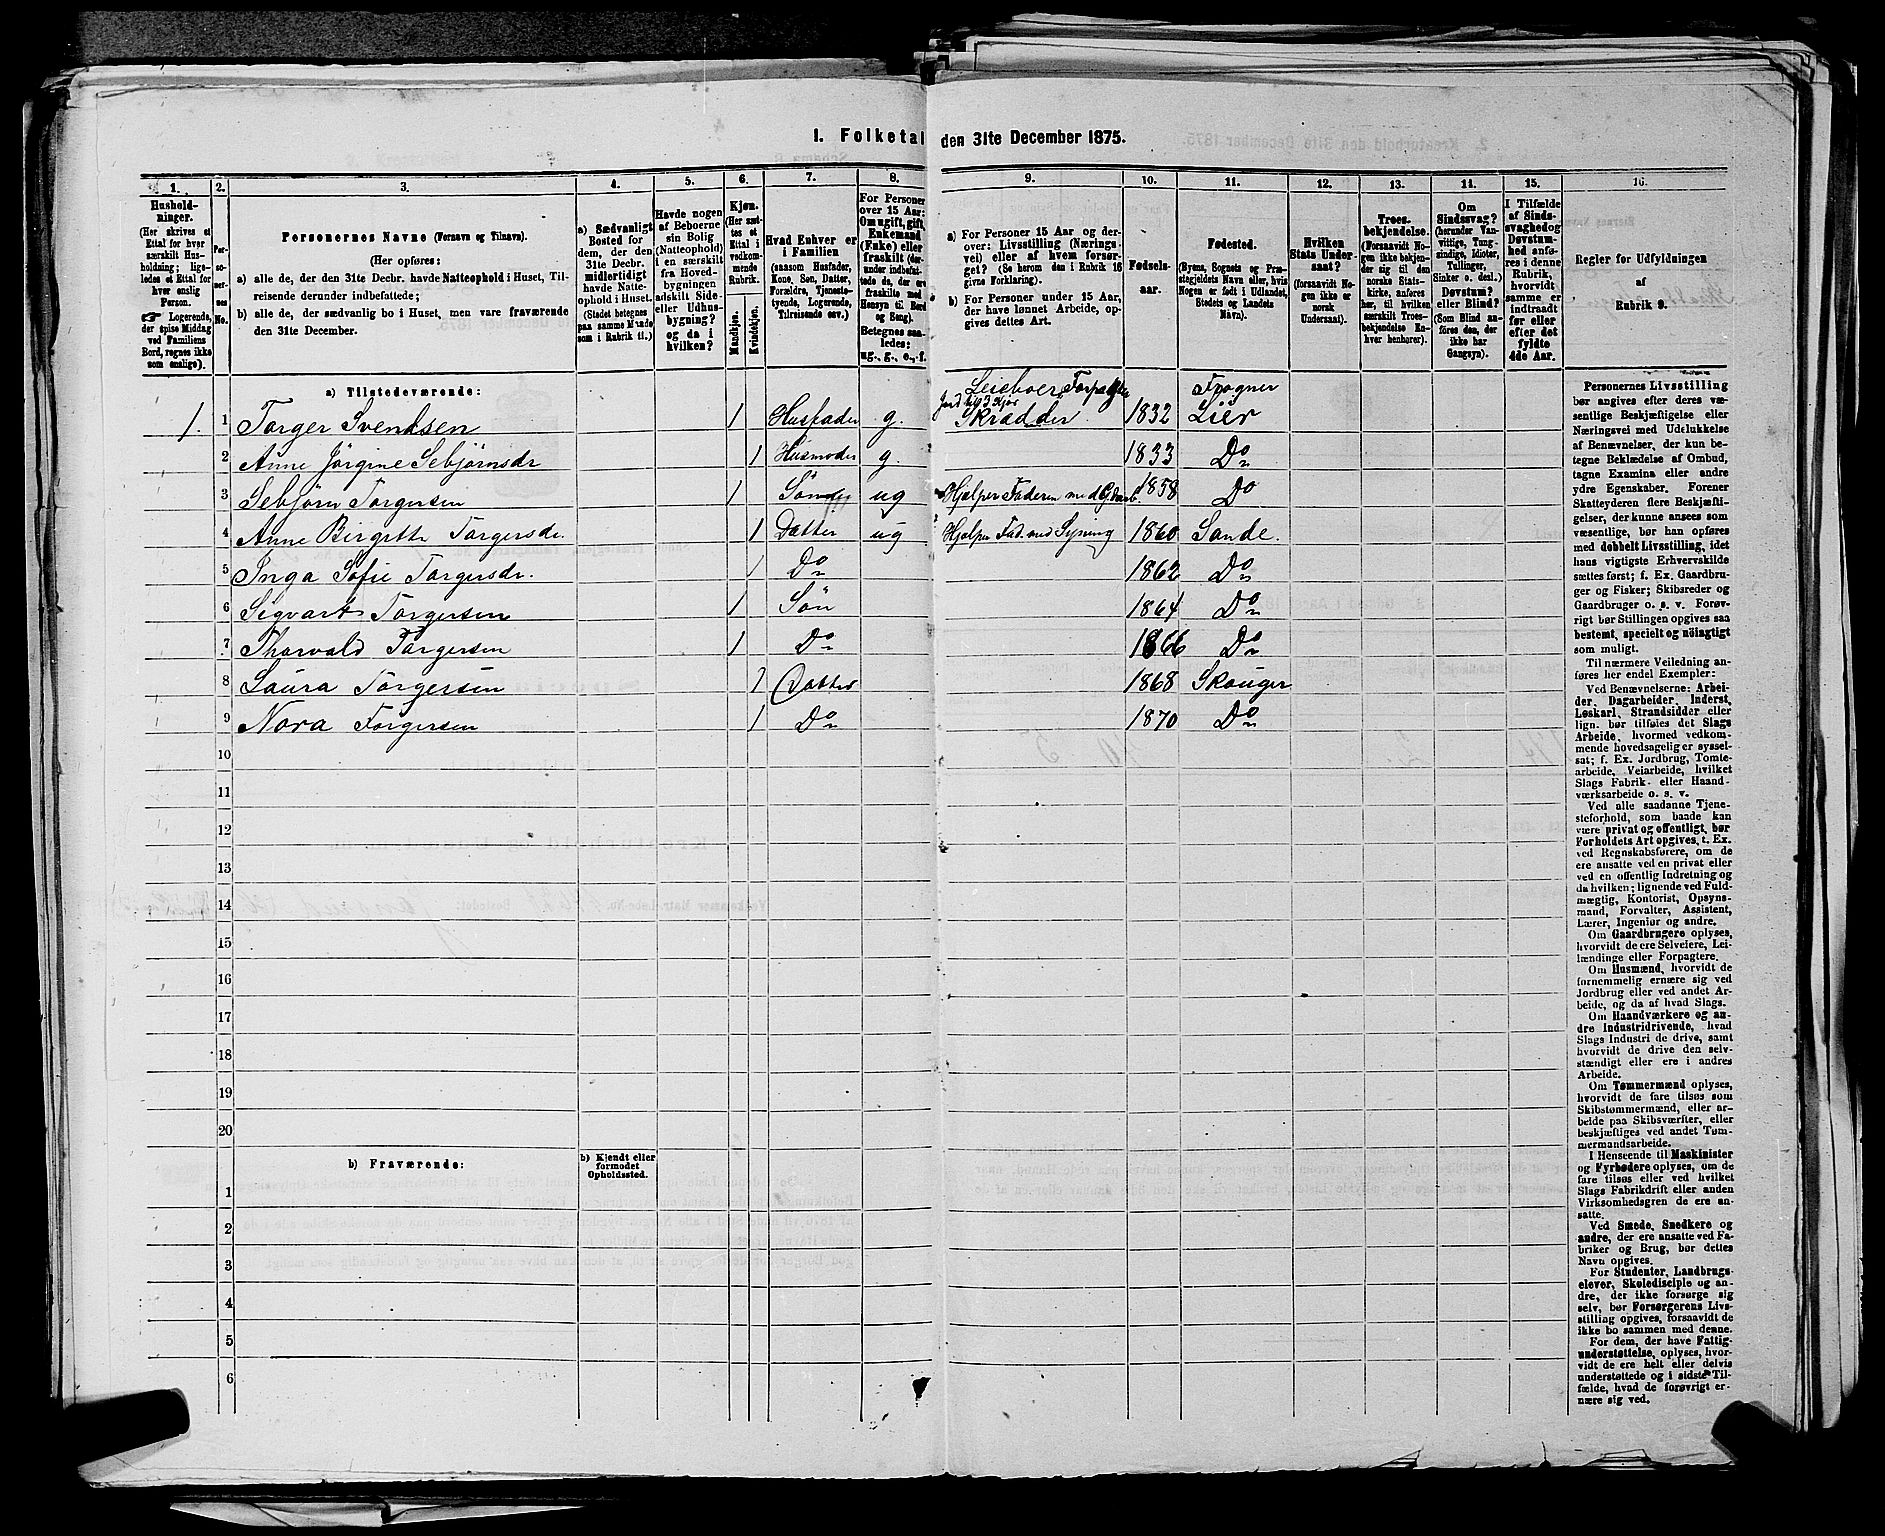 1. Folketal den 31te December 1875.
1. 2. 3. 4. 5. 6. 7. 8. 9. 10. 11. 12. 13. 14. 15. 16.
Hushold-
ninger.
(Her skrives et
Ettal for hver
særskilt Hus-
holdning; lige-
ledes et Ettal for
hver enslig
Person.
☞ Logerende,
der spise Middag
ved Familiens
Bord, regnes ikke
som enslige).
Per-
so-
ner-
nes
No.
Personernes Navne (Fornavn og Tilnavn).
(Her opføres:
a) alle de, der den 31te Decbr. havde Natteophold i Huset, Til-
reisende derunder indbefattede;
b) alle de, der sædvanlig bo i Huset, men vare fraværende
den 31te December.
a) Sædvanligt
Bosted for
dem, der den
31te Decbr.
midlertidigt
havde Natte-
ophold i Huset.
(Stedet betegnes
paa samme Maade
som i Rubrik 11.)
Havde nogen
af Beboerne
sin Bolig
(Natteophold)
i en særskilt
fra Hoved-
bygningen
adskilt Side-
eller Udhus-
bygning?
og da i
hvilken?
Kjøn.
(Her sæt-
tes et
Ettal i
vedkom-
mende
Rubrik.
Mandkjøn.
Kvindekjøn.
Hvad Enhver er
i Familien
(saasom Husfader,
Kone, Søn, Datter,
Forældre, Tjeneste-
tyende, Logerende,
Tilreisende osv.)
For Personer
over 15 Aar:
Om ugift, gift,
Enkemand
(Enke) eller
fraskilt (der-
under indbefat-
tede de, der ere
fraskilte med
Hensyn til Bord
og Seng).
Betegnes saa-
ledes:
ug., g., e., f.
a) For Personer 15 Aar og der-
over: Livsstilling (Nærings-
vei) eller af hvem forsør-
get? (Se herom den i Rubrik 16
givne Forklaring).
b) For Personer under 15 Aar,
der have lønnet Arbeide, op-
gives dettes Art.
Fødsels-
aar.
Fødested.
(Byens, Sognets og Præ-
stegjeldets Navn eller, hvis
Nogen er født i Udlandet,
Stedets og Landets
Navn).
Hvilken
Stats Under-
saat?
(forsaavidt No-
gen ikke er
norsk
Undersaat).
Troes-
bekjendelse.
(Forsaavidt No-
gen ikke bekjen-
der sig til den
norske Stats-
kirke, anføres
her, til hvilken
særskilt Troes-
bekjendelse En-
hver henhører).
Om
Sindssvag?
(herunder Van-
vittige, Tung-
sindige, Idioter,
Tullinger,
Sinker o. desl.)
Døvstum?
eller Blind?
(Som Blind an-
føres den, der
ikke har
Gangsyn).
I Tilfælde
af Sinds-
svaghed og
Døvstum-
hed anfø-
res i denne
Rubrik,
hvorvidt
samme er
indtraadt
før eller
efter det
fyldte
4de Aar.
Regler for Udfyldningen
af
Rubrik 9.
a) Tilstedeværende:
Leieboer Forpagter Frogner
Jord til 3 Kjør
1. 1 Torger Svendsen 1 Husfader g. Skrædder 1832 Lier
2 Anne Jörgine Sebjörnsdr 1 Husmoder g. 1833 Do
3 Sebjörn Torgersen 1 Sön ug Hjælper Faderen med 1858 Do
4 Anne Birgitte Torgersdr. 1 Datter ug Hjælper Fad. med Syning 1860 Sande.
5 Inga Sofie Torgersdr. 1 Do 1862 Do
6 Sigvart Torgersen 1 Sön 1864 Do
7 Thorvald Torgersen 1 Do 1866 Do
8 Laura Torgersen 1 Datter 1868 Skouger
9 Nora Torgersen 1 Do 1870 Do
10
11
12
13
14
15
16
17
18
19
20
b) Fraværende:
b) Kjendt eller
formodet
Opholdssted.
1
2
3
4
5
6
Personernes Livsstilling
bør angives efter deres væ-
sentlige Beskjæftigelse eller
Næringsvei med Udelukkelse
af Benævnelser, der kun be-
tegne Beklædelse af Ombud,
tagne Examina eller andre
ydre Egenskaber. Forener
Skatteyderen flere Beskjæfti-
gelser, der kunne ansees som
væsentlige, bør han opføres
med dobbelt Livsstilling, idet
hans vigtigste Erhvervskilde
sættes først; f. Ex. Gaardbru-
ger og Fisker; Skibsreder og
Gaardbruger o. s. v. Forøv-
rigt bør Stillingen opgives saa
bestemt, specielt og nøiagtigt
som muligt.
Til nærmere Veiledning an-
føres her endel Exempler:
Ved Benævnelserne: Arbei-
der, Dagarbeider, Inderst,
Løskarl, Strandsidder eller
lign. bør tilføies det Slags
Arbeide, hvormed vedkom-
mende hovedsagelig er syssel-
sat; f. Ex. Jordbrug, Tomte-
arbeide, Veiarbeide, hvilket
Slags Fabrik- eller Haand-
værksarbeide o. s. v.
Ved alle saadanne Tjene-
steforhold, som baade kan
være privat og offentligt, bør
Forholdets Art opgives, t. Ex.
ved Regnskabsførere, om de
ere ansatte ved en privat eller
ved en offentlig Indretning og
da hvilken; lignende ved Fuld-
mægtig, Kontorist, Opsyns-
mand, Forvalter, Assistent,
Lærer, Ingeniør og andre.
Om Gaardbrugere oplyses,
hvorvidt de ere Selveiere, Lei-
lændinge eller Forpagtere.
Om Husmænd, hvorvidt de
fornemmelig ernære sig ved
Jordbrug eller ved andet Ar-
beide, og da af hvad Slags.
Om Haandværkere og an-
dre Industridrivende, hvad
Slags Industri de drive, samt
hvorvidt de drive den selv-
stændigt eller ere i andres
Arbeide.
Om Tømmermænd oplyses,
hvorvidt de fare tilsøs som
Skibstømmermænd, eller ar-
beide paa Skibsværfter, eller
beskjæftiges ved andet Tøm-
mermandsarbeide.
I Henseende til Maskinister
og Fyrbødere oplyses, om de
fare tilsøs eller ved hvilket
Slags Fabrikdrift eller anden
Virksomhedsgren de ere an-
satte.
Ved Smede, Snedkere og
andre, der ere ansatte ved Fa-
briker og Brug, bør dettes
Navn opgives.
For Studenter, Landbrugs-
elever, Skoledisciple og an-
dre, der ikke forsørge sig
selv, bør Forsørgerens Livs-
stilling opgives, forsaavidt de
ikke bo sammen med denne.
For dem, der have Fattig-
understøttelse, oplyses, hvor-
vidt de ere helt eller delvis
understøttede og i sidste Til-
fælde, hvad de forøvrigt er-
nære sig ved.